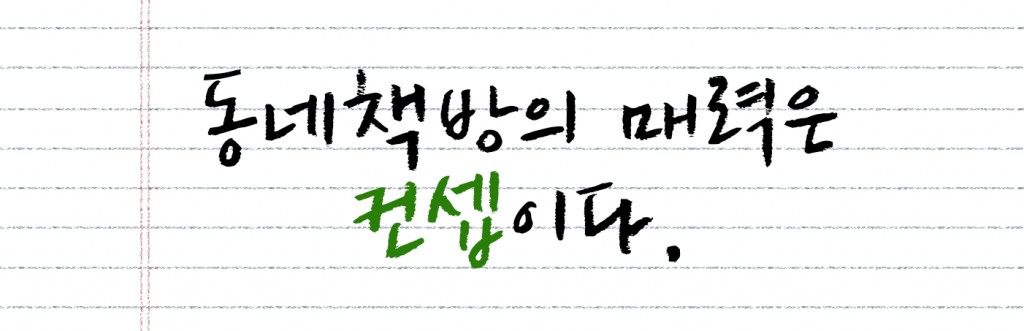 동네책방의 매력은
컨셉이다.